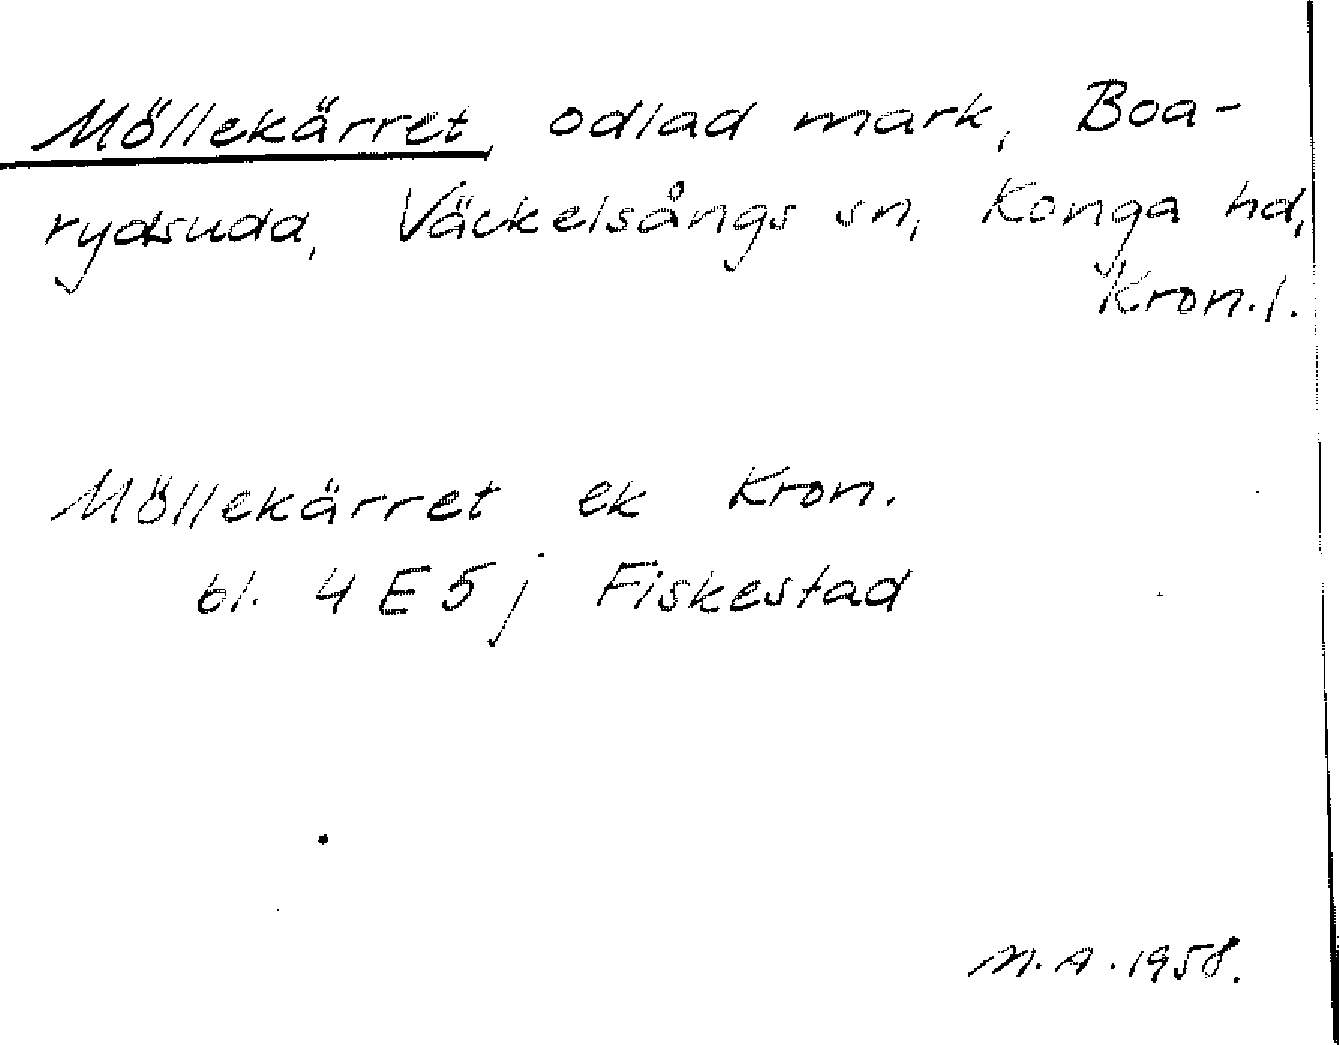 Möllekärret, odlad mark, Boa-
rydsudd, Väckelsångs sn, Konga hd,
Kron.l.
Möllekärret ek Kron.
bl. 4 E 5 j Fiskestad
M.A. 1958.